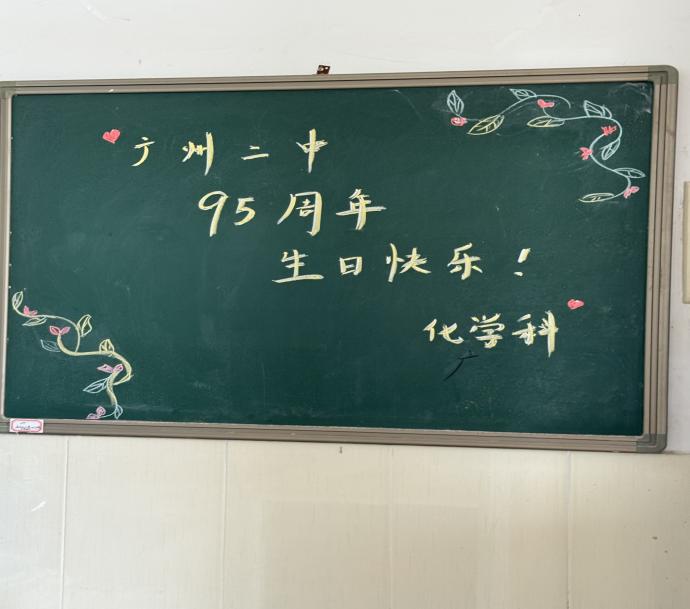 广州二中
95周年
生日快乐！
化学科